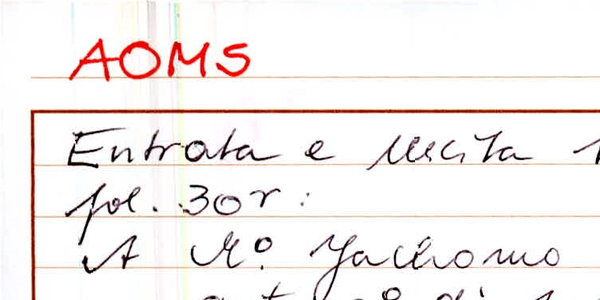 AOMS
Entrata e uscita
fol. 30r:
A Mº. Jachomo